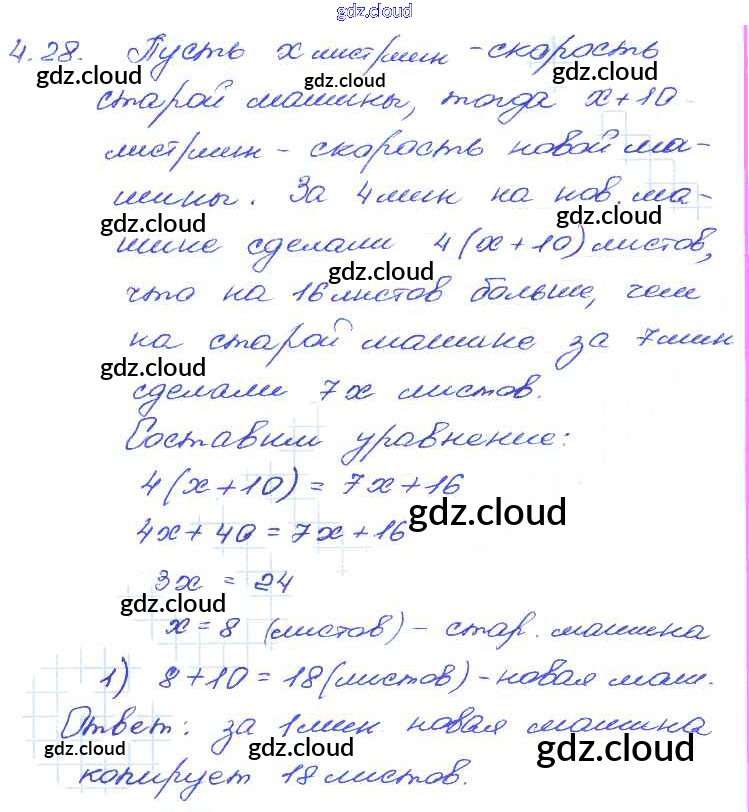 gdz.cloud
4.28. Пусть x лист/мин - скорость
gdz.cloud gdz.cloud
старой машины, тогда x+10
лист/мин - скорость новой ма-
шины. За 4 мин на нов. ма-
gdz.cloud gdz.cloud
шине сделали 4(x+10) листов,
gdz.cloud
что на 16 листов больше, чем
на старой машине за 7 мин
gdz.cloud
сделали 7x листов.
Составим уравнение:
4(x+10) = 7x+16
gdz.cloud
4x+40 = 7x+16
3x = 24
gdz.cloud
x = 8 (листов) - стар. машина
1) 8+10 = 18 (листов) - новая маш.
Ответ: за 1 мин новая машина
gdz.cloud gdz.cloud gdz.cloud
копирует 18 листов.